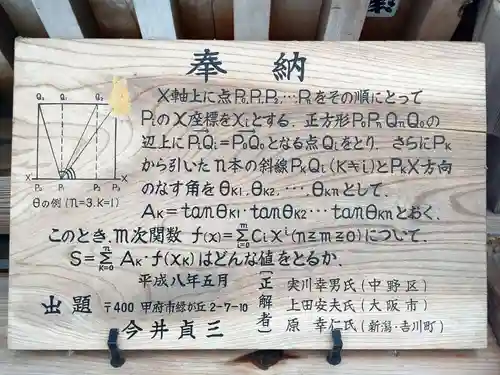 奉納
X軸上に点P₀,P₁,P₂,…Pₙをその順にとって
Pᵢの X座標をXᵢとする. 正方形P₀PₙQₙQ₀の
辺上にPᵢQᵢ=P₀Q₀となる点Qᵢをとり, さらにPκ
から引いたn本の斜線PκQᵢ(K≠i)とPκX方向
のなす角をθκ₁,θκ₂,…,θκₙとして.
Aκ=tanθκ₁・tanθκ₂…tanθκₙとおく.
このとき.m次関数 f(x)=Σ[i=0→m]CᵢXⁱ(n≧m≧0)について.
S=Σ[K=0→n]Aκ・f(Xκ)はどんな値をとるか.
Q₀ Q₁ Q₂ Q₃
X X
P₀ P₁ P₂ P₃
θの例(n=3.K=1)
平成八年五月
出題 〒400 甲府市緑が丘2-7-10
今井貞三
(正解者)
実川幸男氏(中野区)
上田安夫氏(大阪市)
原 幸仁氏(新潟・吉川町)